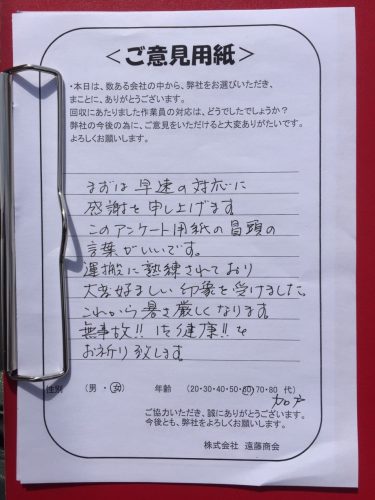 ＜ご意見用紙＞
・本日は、数ある会社の中から、弊社をお選びいただき、
まことに、ありがとうございます。
回収にあたりました作業員の対応は、どうでしたでしょうか？
弊社の今後の為に、ご意見をいただけると大変ありがたいです。
よろしくお願いします。
まずは早速の対応に
感謝を申し上げます
このアンケート用紙の冒頭の
言葉がいいです。
運搬に熟練されており
大変好ましい印象を受けました。
これから暑さ厳しくなります。
無事故!! ご健康!! を
お祈り致します。
性別 （男・女） 年齢 （20・30・40・50・60・70・80 代）
ご協力いただき、誠にありがとうございます。
今後とも、弊社をよろしくお願いします。
株式会社 遠藤商会